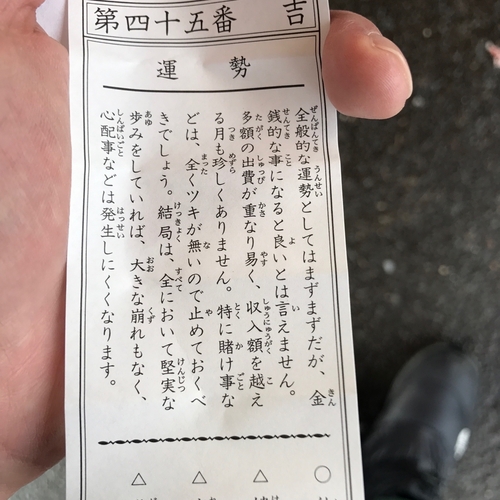 第四十五番 吉
運勢
全般的な運勢としてはまずまずだが、金
銭的な事になると良いとは言えません。
多額の出費が重なり易く、収入額を越え
る月も珍しくありません。特に賭け事な
どは、全くツキが無いので止めておくべ
きでしょう。結局は、全において堅実な
歩みをしていれば、大きな崩れもなく、
心配事などは発生しにくくなります。
○
△
△
△